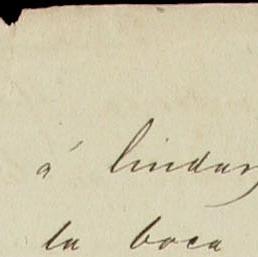 á lindar
la boca